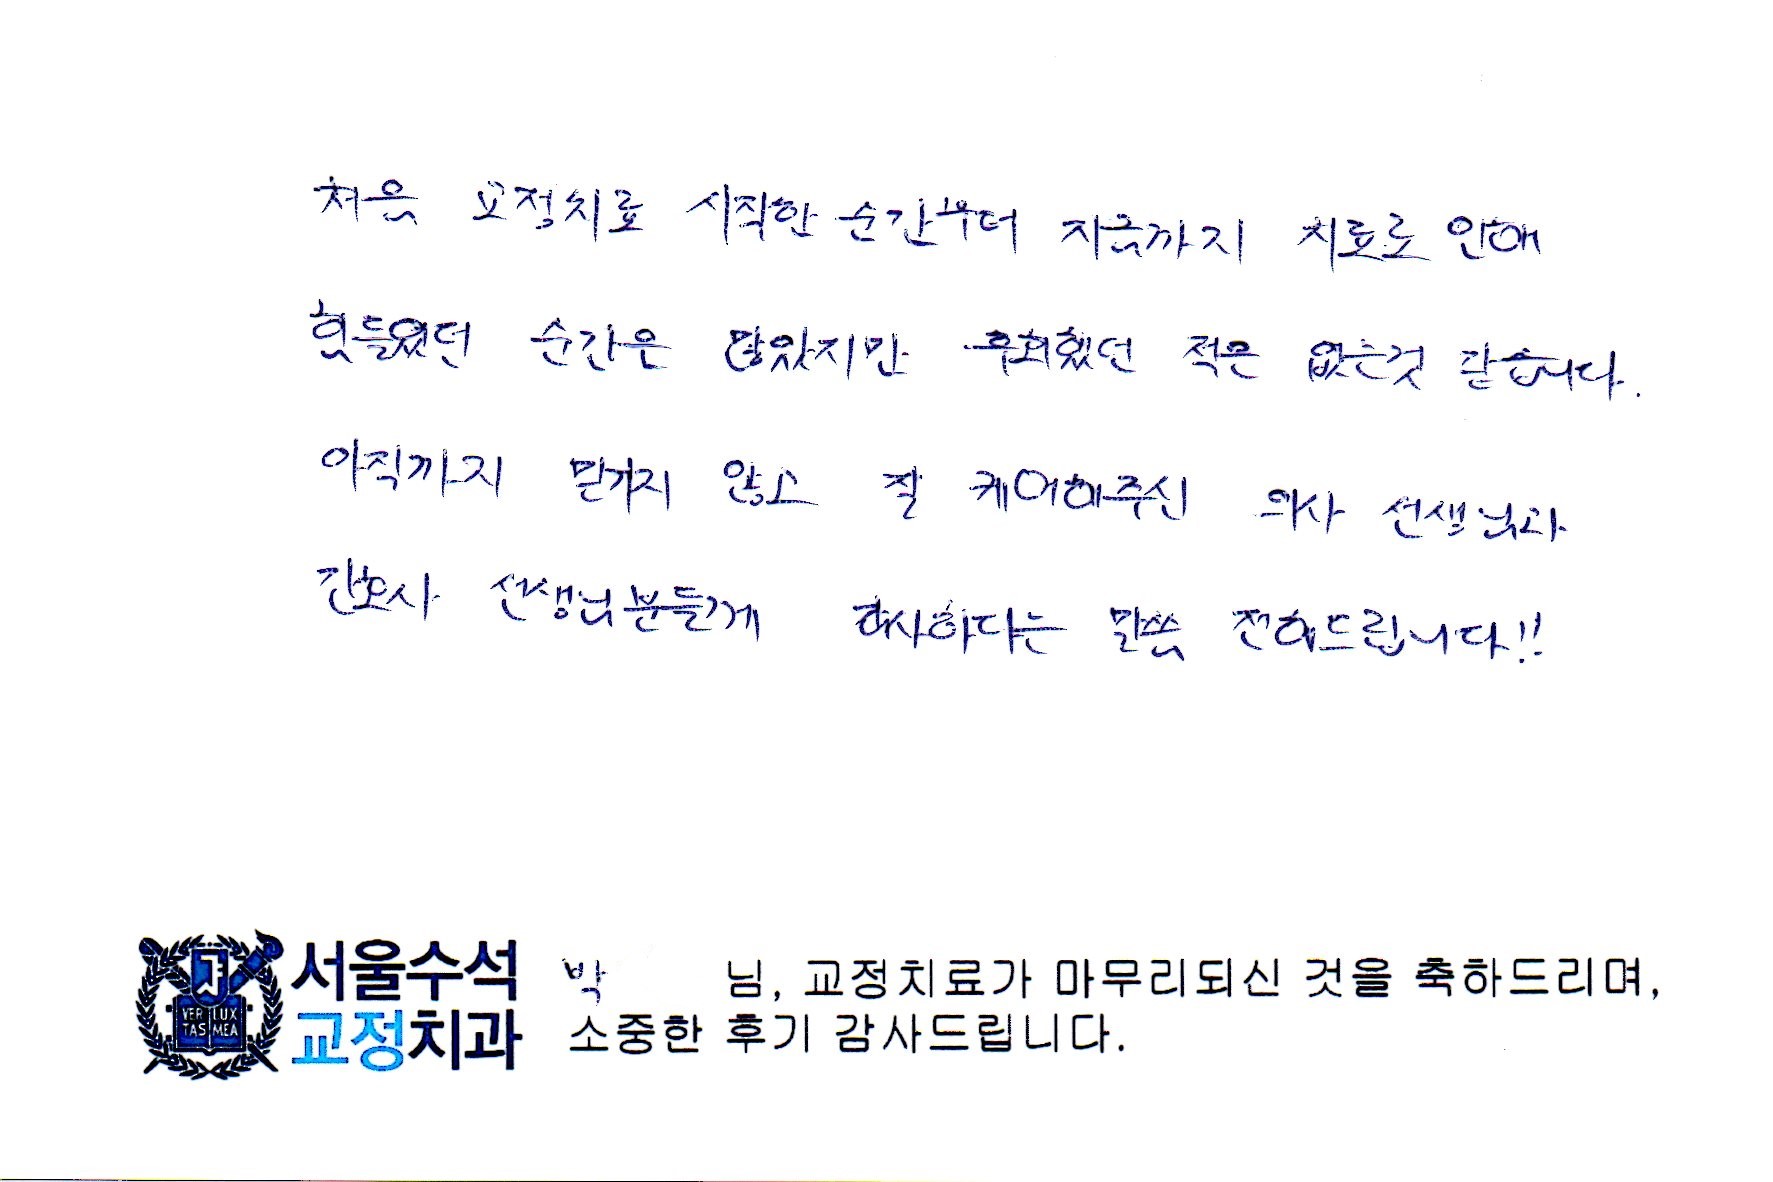 처음 교정치료 시작한 순간부터 지금까지 치료로 인해
힘들었던 순간은 많았지만 후회했던 적은 없는것 같습니다.
아직까지 믿기지 않고 잘 케어해주신 의사 선생님과
간호사 선생님분들께 감사하다는 말씀 전해드립니다!!
서울수석
교정치과
VERI LUX
TAS MEA
박 님, 교정치료가 마무리되신 것을 축하드리며,
소중한 후기 감사드립니다.